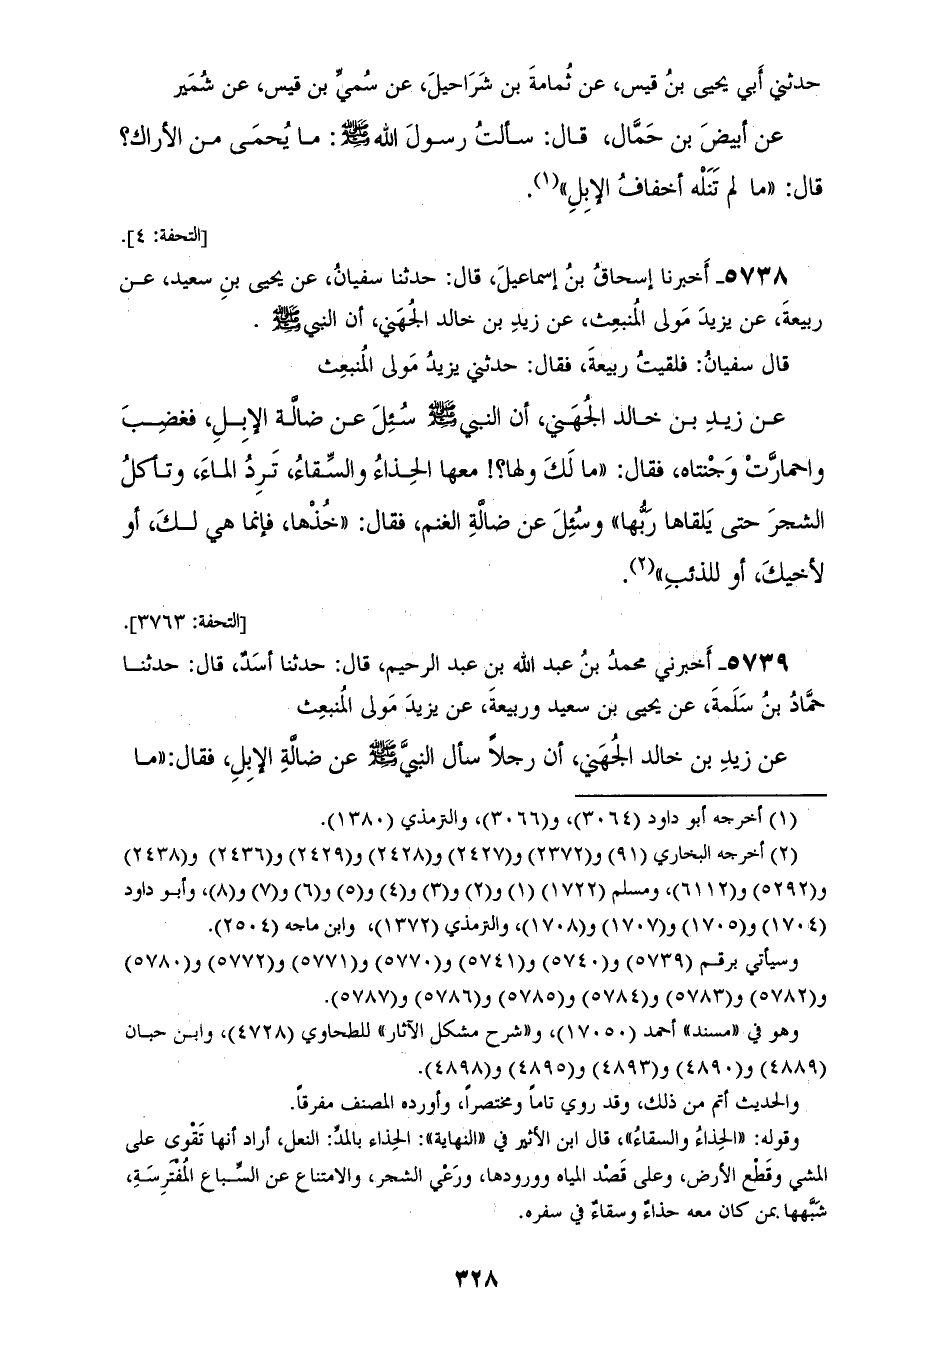 حدثني أَبي يحيى بنُ قيس، عن ثُمامةَ بن شَرَاحيلَ، عن سُميِّ بن قيس، عن شُمَير
عن أبيضَ بن حَمَّال، قال: سألتُ رسولَ الله ﷺ: ما يُحمَى من الأراك؟
قال: «ما لم تَنَلْه أخفافُ الإبلِ»(١).
[التحفة: ٤].
٥٧٣٨ـ أَخبرنا إسحاقُ بنُ إسماعيلَ، قال: حدثنا سفيانُ، عن يحيى بنِ سعيد، عن
ربيعةَ، عن يزيدَ مَولى المُنبعِث، عن زيدِ بن خالد الجُهَني، أن النبي ﷺ .
قال سفيانُ: فلقيتُ ربيعةَ، فقال: حدثني يزيدُ مَولى المُنبعِث
عن زيدِ بن خالد الجُهَني، أن النبي ﷺ سُئِلَ عن ضالَّة الإبلِ، فغضِبَ
واحمارَّتْ وَجْنتاه، فقال: «ما لَكَ ولها؟! معها الحِذاءُ والسِّقاءُ، تَرِدُ الماءَ، وتأكلُ
الشجرَ حتى يَلقاها رَبُّها» وسُئِلَ عن ضالَّةِ الغنم، فقال: «خُذْها، فإنما هي لكَ، أو
لأخيكَ، أو للذئبِ»(٢).
[التحفة: ٣٧٦٣].
٥٧٣٩ـ أَخبرني محمدُ بنُ عبد الله بن عبد الرحيم، قال: حدثنا أسَدٌ، قال: حدثنا
حمَّادُ بنُ سَلَمةَ، عن يحيى بن سعيد وربيعةَ، عن يزيدَ مَولى المُنبعِث
عن زيدِ بن خالد الجُهَني، أن رجلاً سأل النبيَّ ﷺ عن ضالَّةِ الإبلِ، فقال: «ما
(١) أخرجه أبو داود (٣٠٦٤)، و(٣٠٦٦)، والترمذي (١٣٨٠).
(٢) أخرجه البخاري (٩١) و(٢٣٧٢) و(٢٤٢٧) و(٢٤٢٨) و(٢٤٢٩) و(٢٤٣٦) و(٢٤٣٨)
و(٥٢٩٢) و(٦١١٢)، ومسلم (١٧٢٢) (١) و(٢) و(٣) و(٤) و(٥) و(٦) و(٧) و(٨)، وأبو داود
(١٧٠٤) و(١٧٠٥) و(١٧٠٧) و(١٧٠٨)، والترمذي (١٣٧٢)، وابن ماجه (٢٥٠٤).
وسيأتي برقم (٥٧٣٩) و(٥٧٤٠) و(٥٧٤١) و(٥٧٧٠) و(٥٧٧١) و(٥٧٧٢) و(٥٧٨٠)
و(٥٧٨٢) و(٥٧٨٣) و(٥٧٨٤) و(٥٧٨٥) و(٥٧٨٦) و(٥٧٨٧).
وهو في «مسند» أحمد (١٧٠٥٠)، و«شرح مشكل الآثار» للطحاوي (٤٧٢٨)، وابن حبان
(٤٨٨٩) و(٤٨٩٠) و(٤٨٩٣) و(٤٨٩٥) و(٤٨٩٨).
والحديث أتم من ذلك، وقد روي تاماً ومختصراً، وأورده المصنف مفرقاً.
وقوله: «الحِذاءُ والسقاءُ»، قال ابن الأثير في «النهاية»: الحِذاء بالمدِّ: النعل، أراد أنها تَقْوى على
المشي وقَطْع الأرض، وعلى قَصْد المياه وورودها، ورَعْي الشجر، والامتناع عن السِّباع المُفْتَرِسَةِ،
شبَّهها بمن كان معه حذاءٌ وسقاءٌ في سفره.
٣٢٨